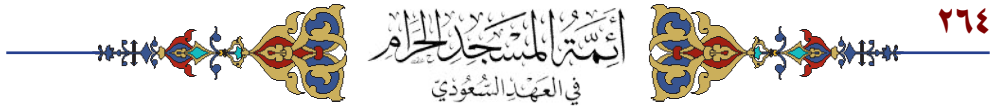 ٢٦٤
أَئِمَّةُ المَسْجِدِ الحَرَامِ
فِي العَهْدِ السُّعُودِيّ